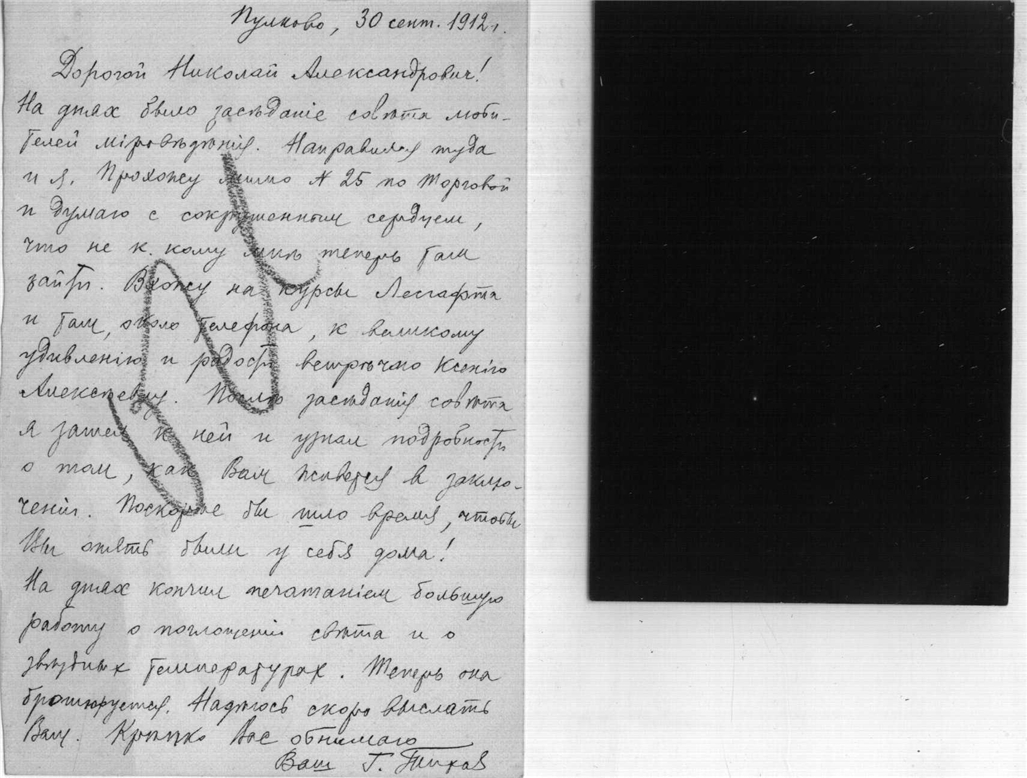 Пулково, 30 сент. 1912 г.
Дорогой Николай Александрович!
На дняхъ было засѣданіе совѣта люби-
телей міровѣдѣнія. Направился туда
и я. Прохожу мимо № 25 по Торговой
и думаю с сокрушенным сердцем,
что не к кому мнѣ теперь там
зайти. Вхожу на курсы Лесгафта
и там, около телефона, к великому
удивленію и радости встрѣчаю Ксенію
Алексѣевну. Послѣ засѣданія совѣта
я зашел к ней и узнал подробности
о том, как Вам живется в заклю-
ченіи. Поскорѣе бы шло время, чтобы
Вы опять были у себя дома!
На днях кончил печатаніем большую
работу о поглощеніи свѣта и о
звѣздных температурах. Теперь она
брошюруется. Надѣюсь скоро выслать
Вам. Крѣпко Вас обнимаю
Ваш Г. Тихов